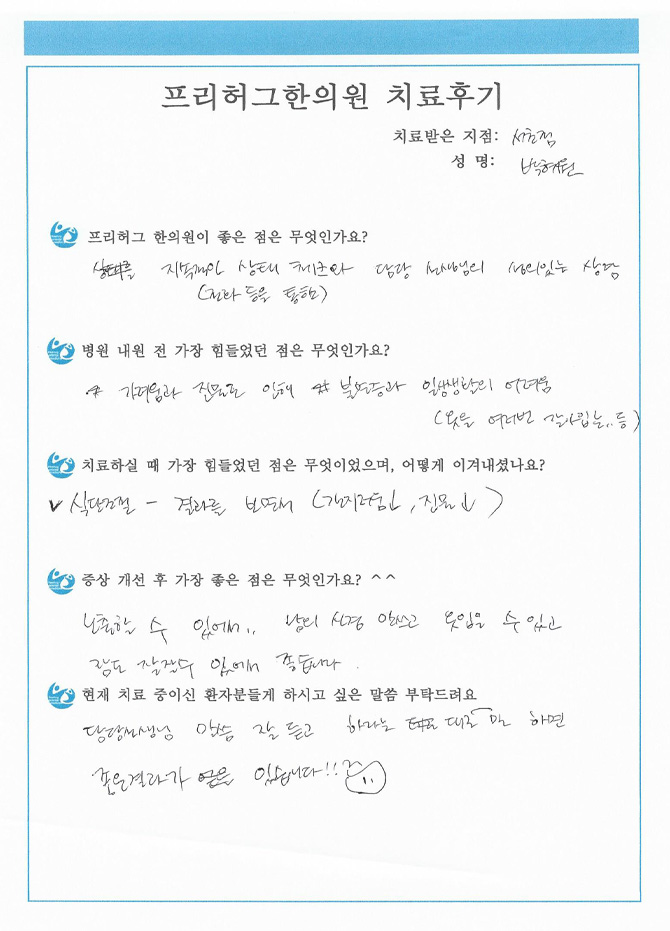 프리허그한의원 치료후기
치료받은 지점: 서초점
성 명: 박혜원
프리허그 한의원이 좋은 점은 무엇인가요?
지속적인 상태 체크와 담당 선생님의 성의있는 상담
(전화 등을 통한)
병원 내원 전 가장 힘들었던 점은 무엇인가요?
가려움과 진물로 인해 불면증과 일상생활의 어려움
(옷을 여러번 갈아입는.. 등)
치료하실 때 가장 힘들었던 점은 무엇이었으며, 어떻게 이겨내셨나요?
✓ 식단조절 - 결과를 보면서 (간지러움↓, 진물↓)
증상 개선 후 가장 좋은 점은 무엇인가요? ^^
노출할 수 있어서.. 남의 시선 안쓰고 옷입을 수 있고
잠도 잘잘수 있어서 좋습니다.
현재 치료 중이신 환자분들게 하시고 싶은 말씀 부탁드려요
담당선생님 말씀 잘 듣고 하라는 대로만 하면
좋은결과가 있습니다!!